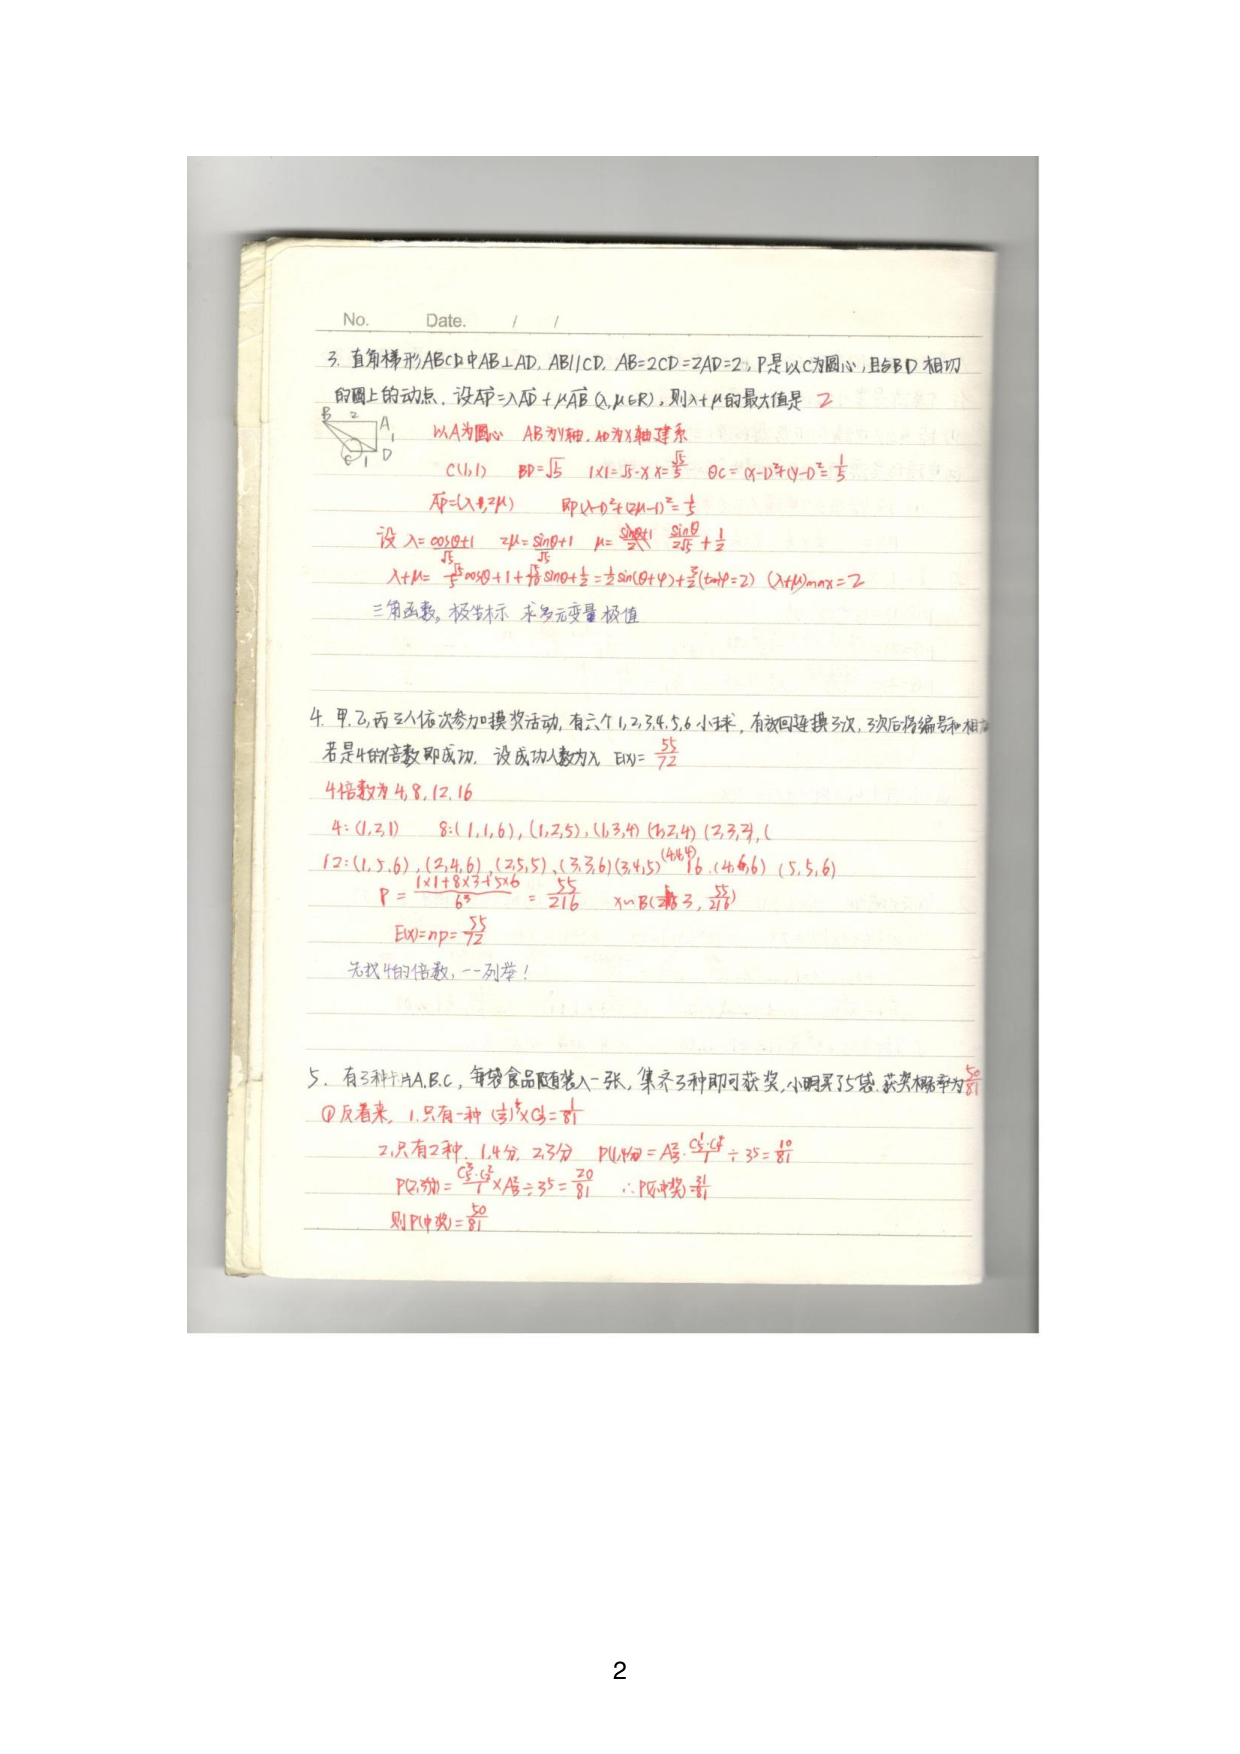 No. Date. / /
3. 直角梯形ABCD中AB⊥AD, AB//CD, AB=2CD=2AD=2, P是以C为圆心,且与BD相切
的圆上的动点. 设AP=λAD+μAB (λ,μ∈R), 则λ+μ的最大值是 2
B 2 A
1
C 1 D
以A为圆心 AB为Y轴, AD为X轴建系
C(1,1) BD=√5 1×1=√5·x x=√5/5 ΘC=(x-1)²+(y-1)²=1/5
AP=(λ,2μ) 即(λ-1)²+(2μ-1)²=1/5
设 λ=cosθ/√5+1 2μ=sinθ/√5+1 μ= sinθ/2√5+1/2
λ+μ=√5/5cosθ+1+√5/10sinθ+1/2=1/2sin(θ+φ)+3/2(tanφ=2) (λ+μ)max=2
三角函数, 极坐标 求多元变量极值
4. 甲,乙,丙三人依次参加摸奖活动, 有六个1,2,3,4,5,6小球, 有放回连摸3次, 3次后将编号和相加
若是4的倍数即成功. 设成功人数为X E(X)=55/72
4倍数为4,8,12,16
4:(1,2,1) 8:(1,1,6),(1,2,5),(1,3,4) (2,2,4) (2,3,3), (
12:(1,5,6),(2,4,6),(2,5,5),(3,3,6)(3,4,5) (4,4,4) 16.(4,6,6) (5,5,6)
P=1×1+8×3+5×6/6³=55/216 X~B(3,55/216)
E(X)=np=55/72
先找4的倍数, 一一列举!
5. 有3种卡片A,B,C, 每袋食品随装入一张, 集齐3种即可获奖, 小明买了5袋. 获奖概率为50/81
①反着来, 1.只有一种 (1/3)⁵×C₃¹=1/81
2.只有2种. 1,4分, 2,3分 P(1,4分)=A₃²·C₅¹·C₄⁴/1÷3⁵=10/81
P(2,3分)=C₅³·C₂²/1×A₃²÷3⁵=20/81 ∴P(不中奖)=31/81
则P(中奖)=50/81
2